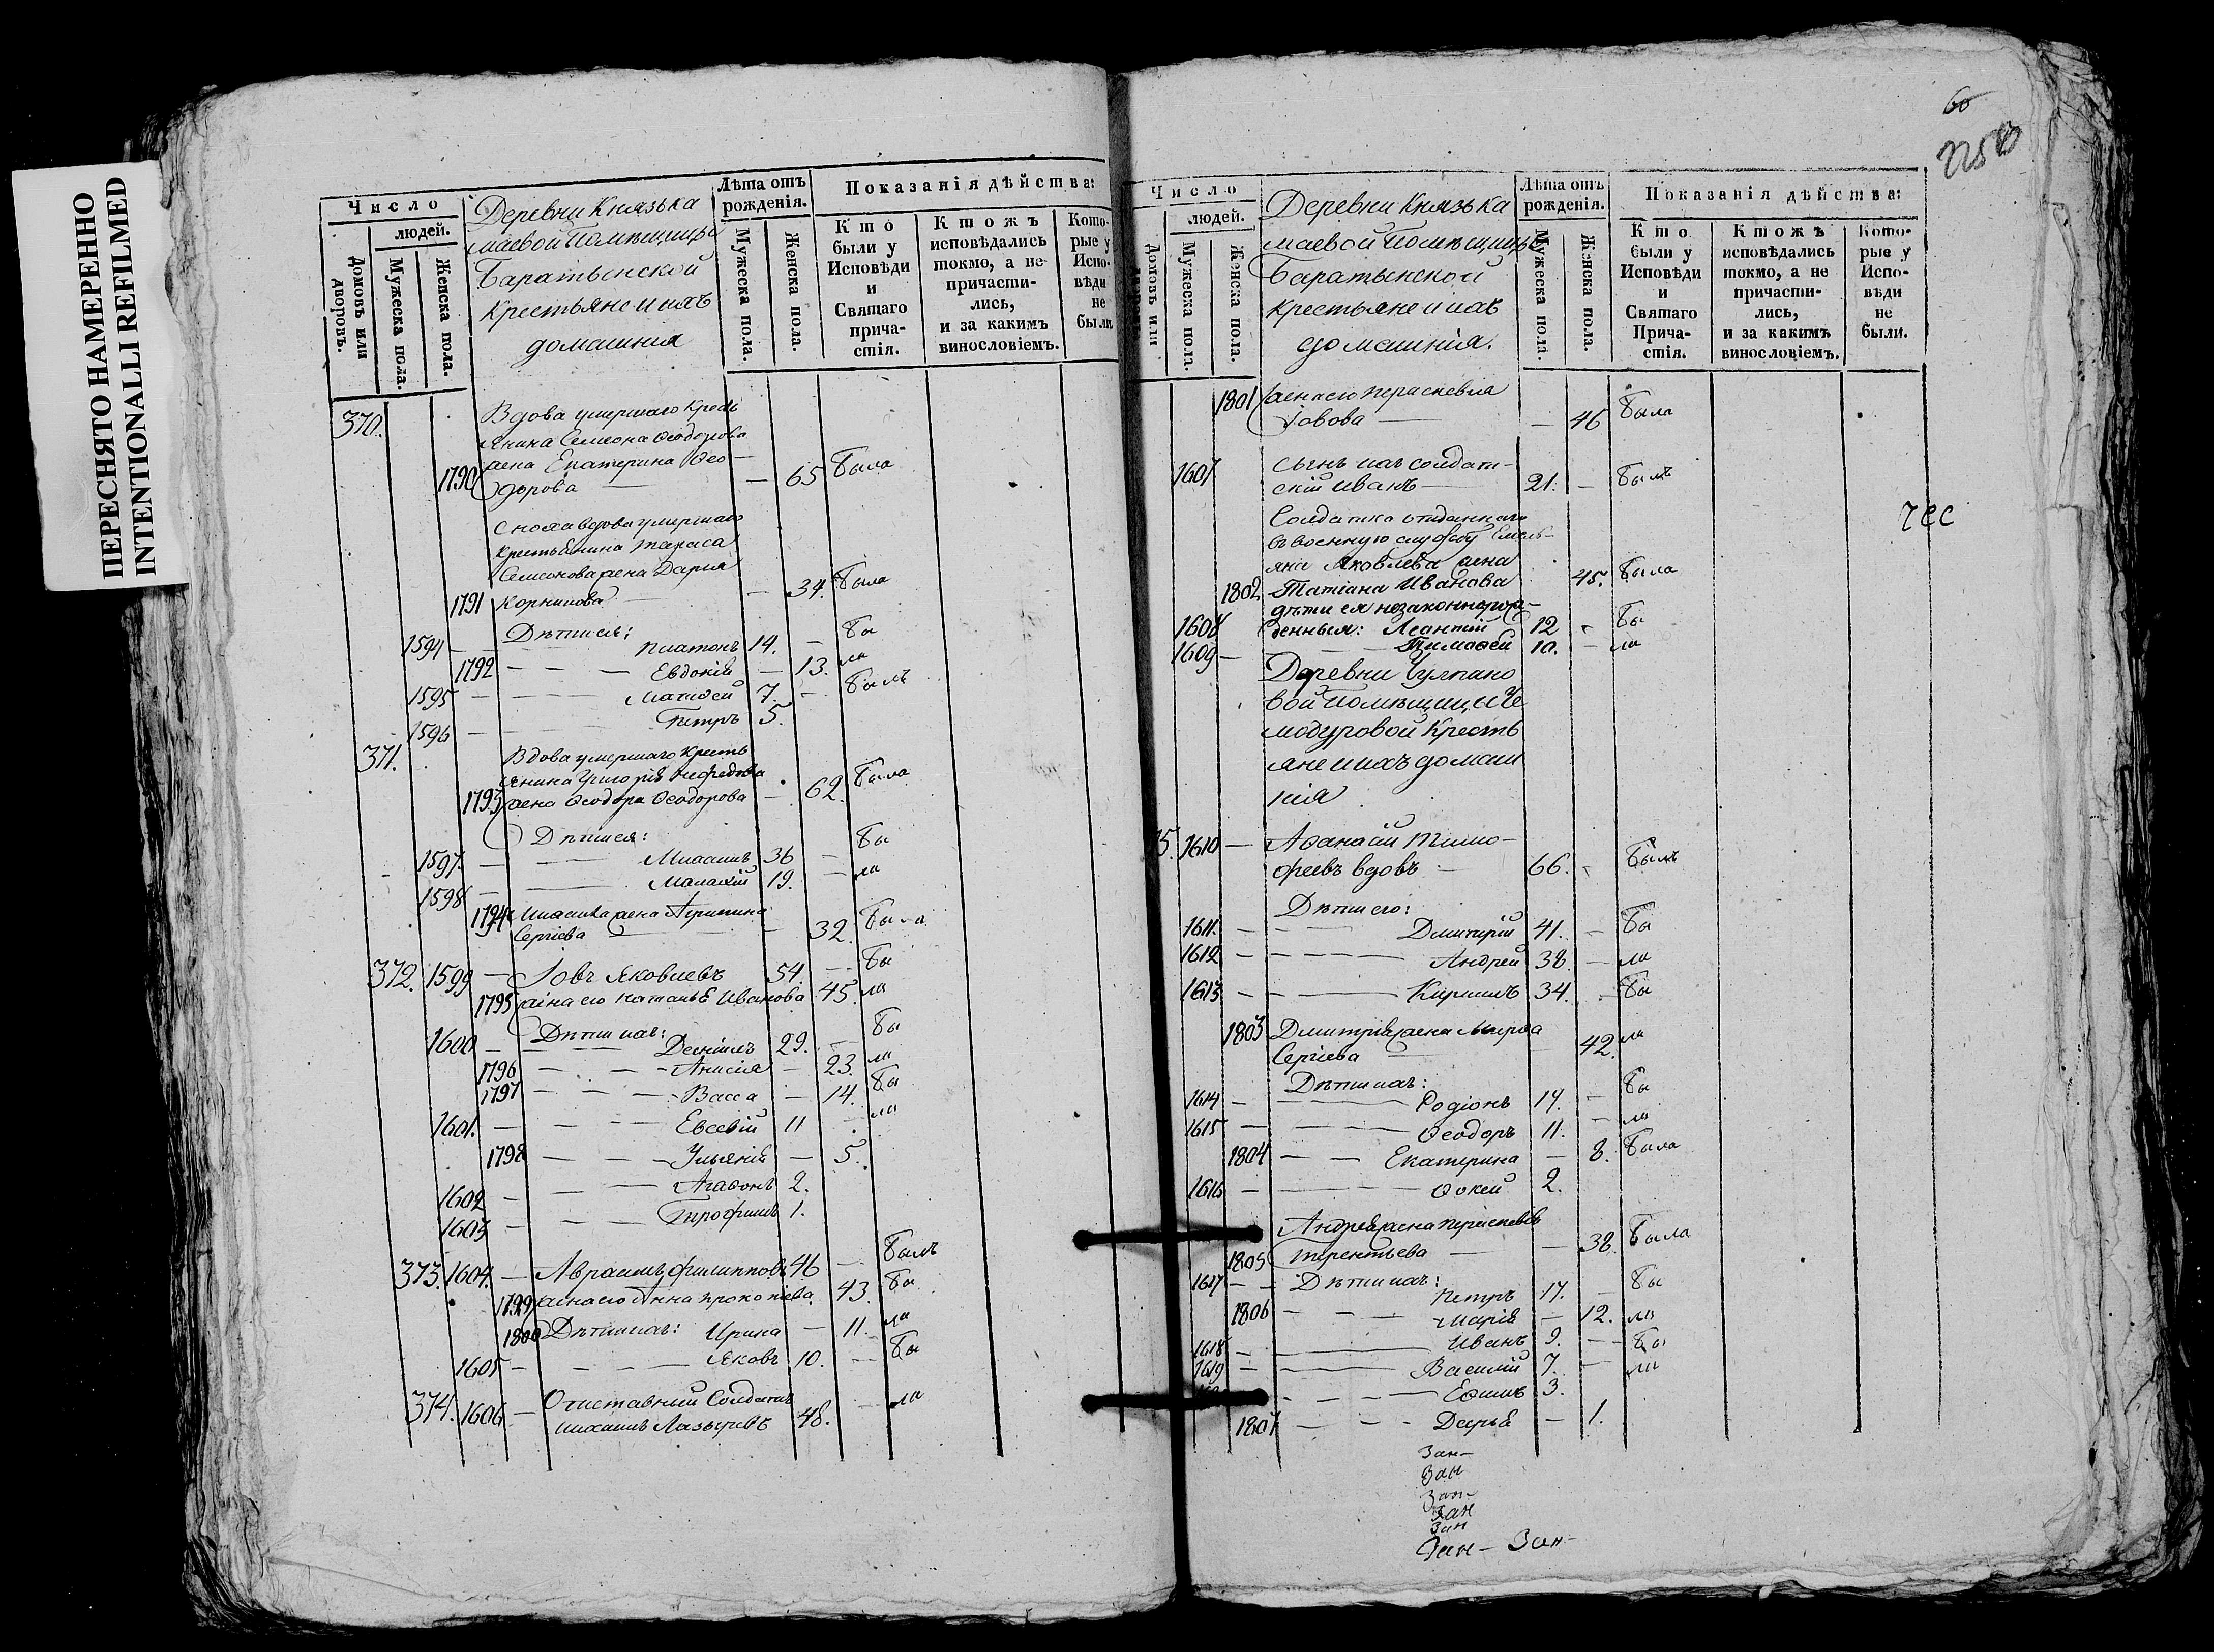 ПЕРЕСНЯТО НАМЕРЕННО
INTENTIONALLI REFILMED
Число
людей.
Домовъ или дворовъ.
Мужеска пола.
Женска пола.
Деревни Князька
маевой Помѣщицы
Баратынской
крестьяне и ихъ
домашнія
Лѣта отъ рожденія.
Мужеска пола.
Женска пола.
Показанія дѣйства:
Кто были у Исповѣди и Святаго причастія.
Ктожъ исповѣдались токмо, а не причастились, и за какимъ винословіемъ.
Которые у Исповѣди не были.
370. Вдова умершаго кресть
янина Симеона Ѳеодорова
жена Екатерина Ѳео—
1790 дорова — — 65 была
Сноха вдова умершаго
крестьянина Тараса
Семенова жена Дарья
1791 Корнилова — — 34. была
Дѣти ея:
1594 — Платонъ 14. — бы
1792 — — — Евдокія — 13. ла
1595 — — — Матѳей 7. — былъ
1596 — — Петръ 5.
371. Вдова умершаго кресть
янина Григорія Нефедова
1793 жена Ѳеодора Ѳеодорова — 62. была
Дѣти ея:
1597. — — Михаилъ 36 — бы
1598 — — Малахій 19. — ла
1794 Михаила жена Агрипина
Сергіева — — 32. была
372. 1599 — Іовъ Яковлевъ 54. — бы
1795 жена его Наталья Иванова 45. ла
Дѣти ихъ:
1600 — — — Даніилъ 29. — бы
1796 — — — Анисія — 23. ла
1797 — — — Васса — 14. бы
1601. — — — Евсевій 11 — ла
1798 — — — Ульянія — 5.
1602 — — — Агаѳонъ 2.
1603 — — — Трофимъ 1.
373. 1604. — Авраамъ Филипповъ 46 — былъ
1799 жена его Анна Прокопіева. 43. бы
1800 Дѣти ихъ: Ирина — 11. ла
1605 — — — Яковъ 10. — бы
374. 1606 — Отставный Солдатъ
Михаилъ Лазаревъ 48. — ла
60
Число
людей.
Домовъ или
Мужеска пола.
Женска пола.
Деревни Князька
маевой Помѣщицы
Баратынской
крестьяне и ихъ
домашнія.
Лѣта отъ рожденія.
Мужеска пола.
Женска пола.
Показанія дѣйства:
Кто были у Исповѣди и Святаго Причастія.
Ктожъ исповѣдались токмо, а не причастились, и за какимъ винословіемъ.
Которые у Исповѣди не были.
1801 жена его Параскевія
Іовова — — 46 была
1607 сынъ ихъ солдат-
скій Иванъ — 21. — былъ
Солдатка отданнаго
въ военную службу Емель-
яна Яковлева жена
1802 Татіана Иванова 45. была
дѣти ея незаконнорож-
1608 денныя: Леонтій 12 — бы
1609 — — Тимофей 10. — ла
Деревни Чулпано
вой Помѣщицы Че
модуровой кресть
яне и ихъ домаш
нія
75. 1610 — Аѳанасій Тимо-
феевъ вдовъ — 66. — былъ
Дѣти его:
1611. — — — Дмитрій 41. — бы
1612 — — — Андрей 38. — ла
1613 — — — Кирилъ 34. — бы
1803 Дмитрія жена Марѳа
Сергіева — — 42. ла
Дѣти ихъ:
1614 — — — Родіонъ 17. — бы
1615 — — — Ѳеодоръ 11. — ла
1804 — — Екатерина — 8. была
1616 — — — Ѳокей 2.
Андрея жена Параскевія
1805 Терентьева — — 38. была
1617 — — Дѣти ихъ:
Петръ 17. — бы
1806 — — — Марія — 12. ла
1618 — — Иванъ 9. — бы
1619 — — Василій 7. — ла
— — — Еѳимъ 3.
1807 — — — Дарья — 1.
Зан-
Зан
Зан-
Зан
Зан
Зан- Зан-